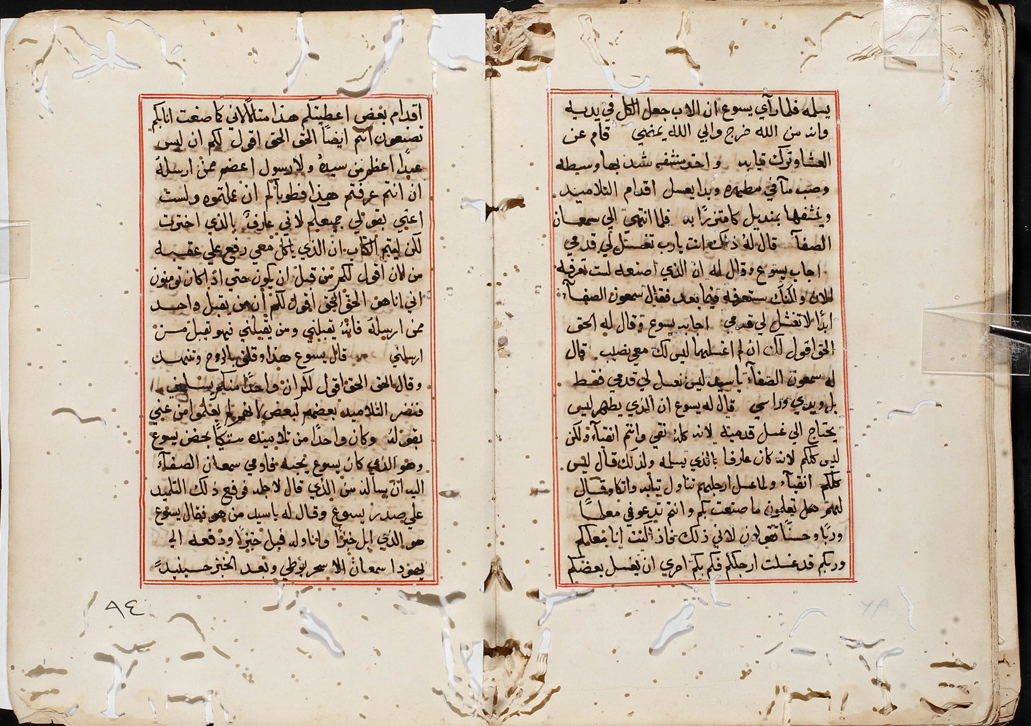 يسلمه فلما رآي يسوع ان الاب جعل الكل في يديه
وانه من الله خرج والي الله يمضي قام عن
العشا وترك ثيابه واخذ منشفه شد بها وسطه
وصب مآ في مطهره وبدا يغسل اقدام التلاميد
وينشفها بمنديل كان متزرًا به فلما انتهي الي سمعان
الصفآ قال له ذاك انت يارب تغسل لي قدمي
اجاب يسوع وقال له ان الذي اصنعه لست تعرفه
الان ولكنك ستعرفه فيما بعد فقال سمعون الصفآ
ابدًا لا تغسل لي قدمي اجابه يسوع وقال له الحق
الحق اقول لك ان لم اغسلهما ليس لك معي نصيب قال
له سمعون الصفآ ياسيد ليس تغسل لي قدمي فقط
بل ويدي وراسي قال له يسوع ان الذي يطهر ليس
يحتاج الي غسل قدميه لانه كله نقي وانتم انقيآء ولكن
ليس كلكم لانه كان عارفا بالذي يسلمه ولذلك قال ليس
كلكم انقيآء ولما غسل ارجلهم تناول ثيابه واتكا وقال
لهم هل تعلمون ما صنعت بكم وانتم تدعوني معلمًا
وربًا وحسنًا تقولون لاني ذلك فاذ كنت انا معلمكم
وربكم قد غسلت ارجلكم فكم بكم احري ان يغسل بعضكم
اقدام بعض اعطيتكم هذا مثالًا لاني كما صنعت انا بكم
تصنعون انتم ايضًا الحق الحق اقول لكم ان ليس
عبدًا اعظم من سيده ولا رسول اعضم ممن ارسله
ان انتم عرفتم هذا فطوباكم ان عملتموه ولست
اعني بقولي جميعكم لاني عارف بالذي اخترت
لكن ليتم الكتاب ان الذي ياكل معي رفع علي عقبه
من الان اقول لكم من قبل ان يكون حتي اذا كان تومنون
اني انا هو الحق الحق اقول لكم ان من يقبل واحد
ممن ارسله فانه يقبلني ومن يقبلني فهو يقبل من
ارسلني قال يسوع هذا وقلق بالروح وتنهد
وقال الحق الحق اقول لكم ان واحدًا منكم يسلمني
فنضر التلاميد بعضهم لبعض لانهم لم يعلموا من عني
بقوله وكان واحدًا من تلاميده متكيًا بحضن يسوع
وهو الذي كان يسوع يحبه فاومي سمعان الصفآء
اليه ان يساله من الذي قال لاجله فوقع ذلك التلميد
علي صدر يسوع وقال له ياسيد من هو فقال يسوع
هو الذي ابل خبزًا واناوله فبل خبزًا ودفعه الي
يهودا سمعان الاسخريوطي وبعد الخبز حينيذ
٩٤